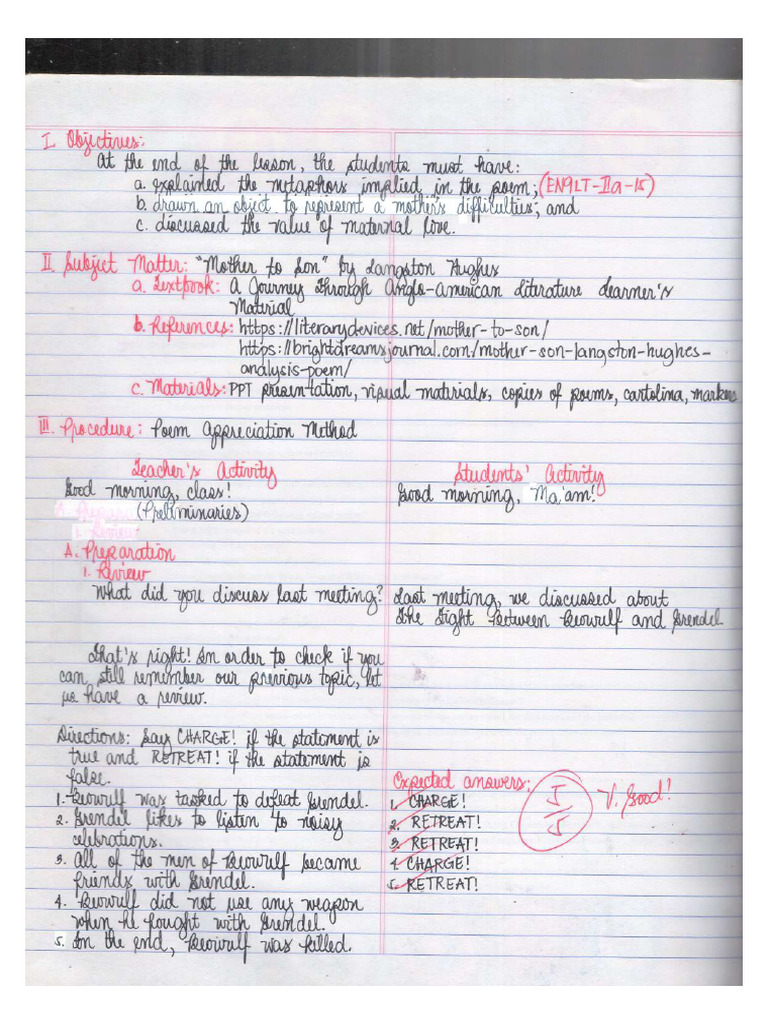 I. Objectives:
At the end of the lesson, the students must have:
a. explained the metaphors implied in the poem; (EN9LT-IIa-15)
b. drawn an object to represent a mother's difficulties; and
c. discussed the value of maternal love.
II. Subject Matter: "Mother to Son" by Langston Hughes
a. Textbook: A Journey through Anglo-American Literature Learner's
Material
b. References: https://literarydevices.net/mother-to-son/
https://brightdreamsjournal.com/mother-son-langston-hughes-
analysis-poem/
c. Materials: PPT presentation, visual materials, copies of poems, cartolina, markers
III. Procedure: Poem Appreciation Method
Teacher's Activity
Good morning, class!
(Preliminaries)
A. Preparation
1. Review
What did you discuss last meeting?
That's right! In order to check if you
can still remember our previous topic, let
us have a review.
Directions: Say CHARGE! if the statement is
true and RETREAT! if the statement is
false.
1. Beowulf was tasked to defeat Grendel.
2. Grendel likes to listen to noisy
celebrations.
3. All of the men of Beowulf became
friends with Grendel.
4. Beowulf did not use any weapon
when he fought with Grendel.
5. In the end, Beowulf was killed.
Students' Activity
Good morning, Ma'am!
Last meeting, we discussed about
the Fight Between Beowulf and Grendel.
Expected answers:
1. CHARGE!
2. RETREAT!
3. RETREAT!
4. CHARGE!
5. RETREAT!
5/5 V. Good!